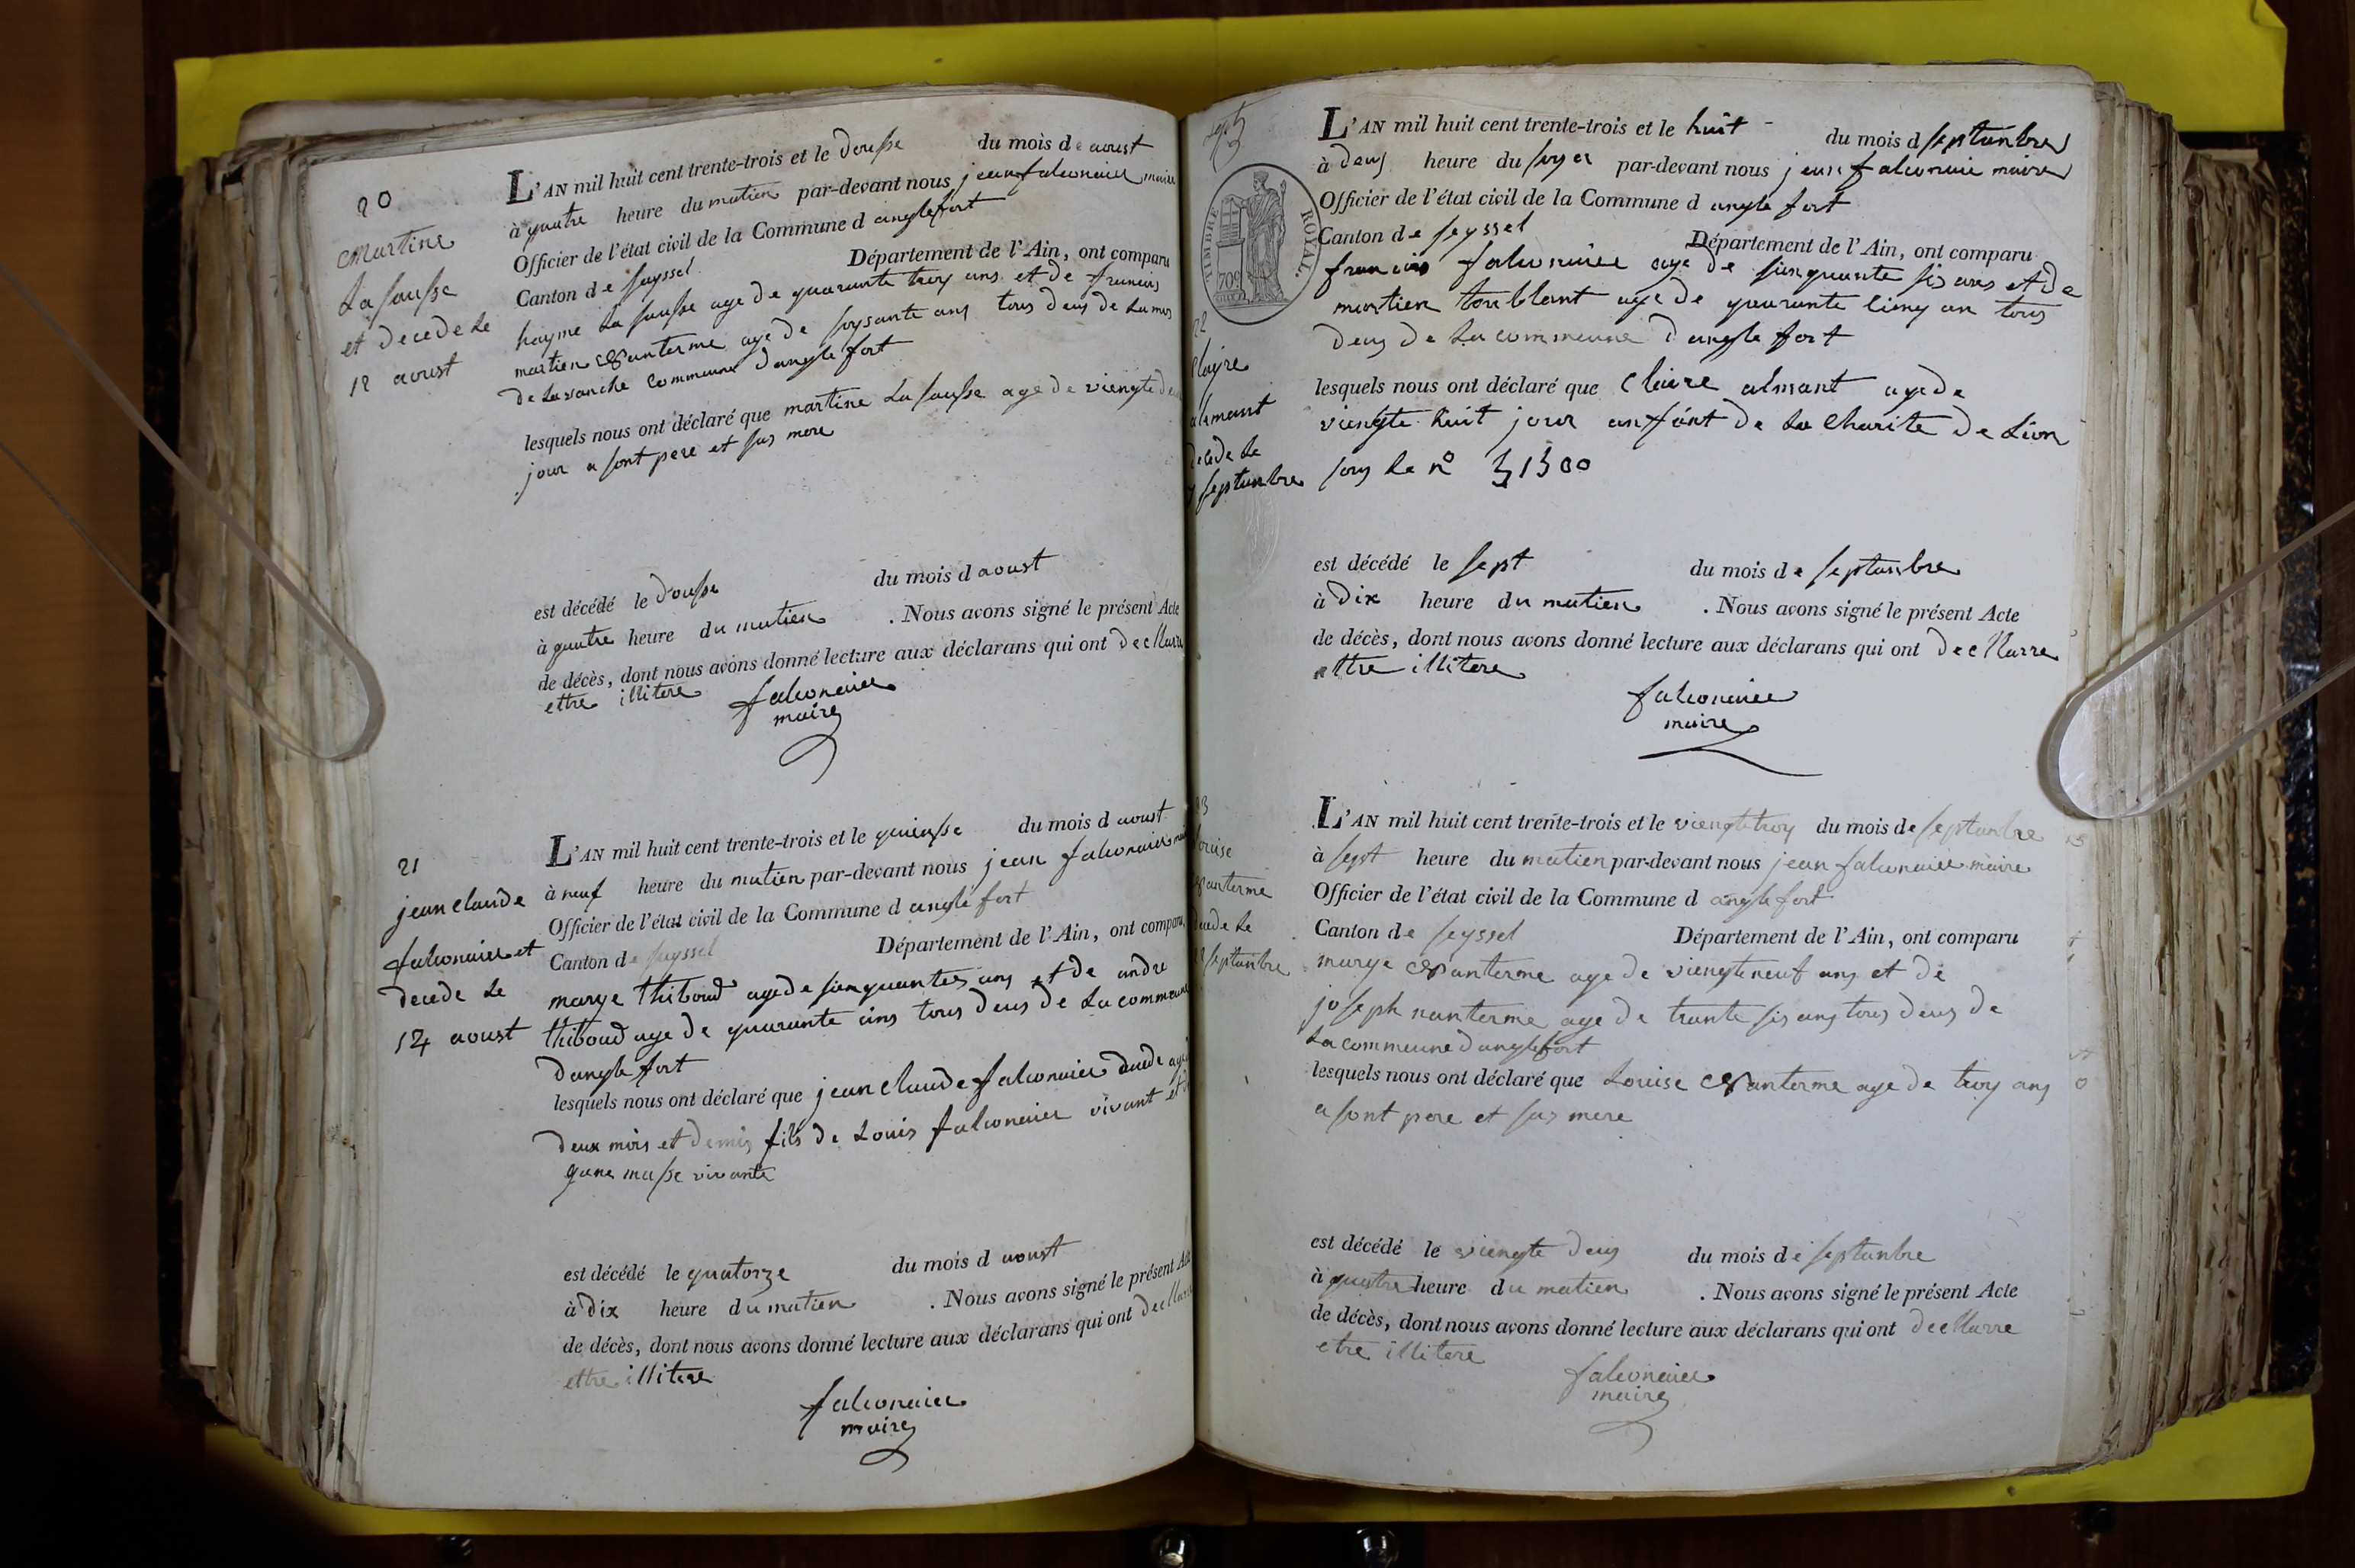 20
Martine
La sausse
et decede le
12 aoust
L'AN mil huit cent trente-trois et le dousse du mois de aoust
à quatre heure du matien par-devant nous jean falconnier maire
Officier de l'état civil de la Commune d anglefort
Canton de seyssel Département de l'Ain, ont comparu
hayme La sausse age de quarante troy ans et de francois
martien Nanterme age de soysante ans tous deus de
de commune d'anglefort
lesquels nous ont déclaré que martine La sausse age de viengte
jour a sont pere et sas mere
est décédé le dousse du mois d aoust
à quatre heure du matien . Nous avons signé le présent Acte
de décès, dont nous avons donné lecture aux déclarans qui ont decllarre
ettre illitere
falconnier
maire
21
jean claude
falconnier et
decede le
14 aoust
L'AN mil huit cent trente-trois et le quiensse du mois d aoust
à neuf heure du matien par-devant nous jean falconnier
Officier de l'état civil de la Commune d anglefort
Canton de seyssel Département de l'Ain, ont comparu
marye thiboud age de sinquante ans et de andre
thiboud age de quarante ans tous deus de La commeune
d'anglefort
lesquels nous ont déclaré que jean claude falconnier
deux mois et demis fils de Louis falconnier vivant et
masse vivante
est décédé le quatorze du mois d aoust
à dix heure du matien . Nous avons signé le présent Acte
de décès, dont nous avons donné lecture aux déclarans qui ont
ettre illitere
falconnier
maire
TIMBRE ROYAL.
70c
22
Clayre
alemant
decede le
7 septanbre
L'AN mil huit cent trente-trois et le huit du mois d septanbre
à deus heure du soyer par-devant nous jean falconnier maire
Officier de l'état civil de la Commune d anglefort
Canton de seyssel Département de l'Ain, ont comparu
francois falconnier age de sinquante sis ans et de
martien tonblant age de quarante cinq an tous
deus de La commeune d'anglefort
lesquels nous ont déclaré que Claire almant age de
viengte huit jour anfant de La Charite de Lion
sous le n° 31300
est décédé le sept du mois de septanbre
à dix heure du matien . Nous avons signé le présent Acte
de décès, dont nous avons donné lecture aux déclarans qui ont decllarre
ettre illitere
falconnier
maire
23
Louise
Nanterme
decede le
22 septanbre
L'AN mil huit cent trente-trois et le viengtetroy du mois de septanbre
à sept heure du matien par-devant nous jean falconnier maire
Officier de l'état civil de la Commune d anglefort
Canton de seyssel Département de l'Ain, ont comparu
marye Nanterme age de viengteneuf ans et de
joseph nanterme age de trante sis ans tous deus de
La commeune d'anglefort
lesquels nous ont déclaré que Louise Nanterme age de troy ans
a sont pere et sas mere
est décédé le viengte deus du mois de septanbre
à quatre heure du matien . Nous avons signé le présent Acte
de décès, dont nous avons donné lecture aux déclarans qui ont decllarre
etre illitere
falconnier
maire